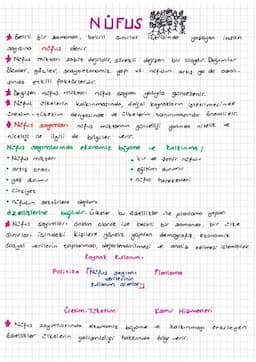 NÜFUS
Belirli bir zamanda, belirli sınırlar içerisinde yaşayan insan
sayısına nüfus denir.
Nüfus miktarı sabit değildir, sürekli değişen bir olgudur. Doğumlar
ölümler, göçler, sosyoekonomik yapı vb. nüfusun artış ya da azalı-
şında etkili faktörlerdir.
Değişen nüfus miktarı nüfus sayımı yoluyla güncellenir.
Nüfus ülkelerin kalkınmasında, doğal kaynakların işletilmesinde
üretim-tüketim dengesinde ve ülkelerin savunmasında önemlidir.
Nüfus sayımları nüfus miktarının güncelliği yanında nitelik ve
niceliği ile ilgili de bilgiler verir.
Nüfus sayımlarında ekonomik büyüme ve kalkınma;
• Nüfus miktarı
• kır ve şehir nüfusu
• artış oranı
• eğitim durumu
• göç durumu
• nüfus hareketleri
• cinsiyet
• nüfusun sektörlere dağılımı
özelliklerine bağlıdır. Ülkeler bu özellikler ile planlama yapar.
Nüfus sayımları anlam olarak ise belirli bir zamanda, bir ülke
sınırları içindeki kişilere yönelik yapılan demografik ekonomik
sosyal verilerin toplanması, değerlendirilmesi ve analiz edilmesi işlemidir.
Kaynak Kullanımı
Politika
Nüfus sayımı
verilerinin
kullanım alanları
Planlama
Üretim-Tüketim
Kamu Hizmetleri
Nüfus sayımlarında ekonomik büyüme ve kalkınmayı etkileyen
özellikler ülkelerin gelişmişliği hakkında bilgi verir.